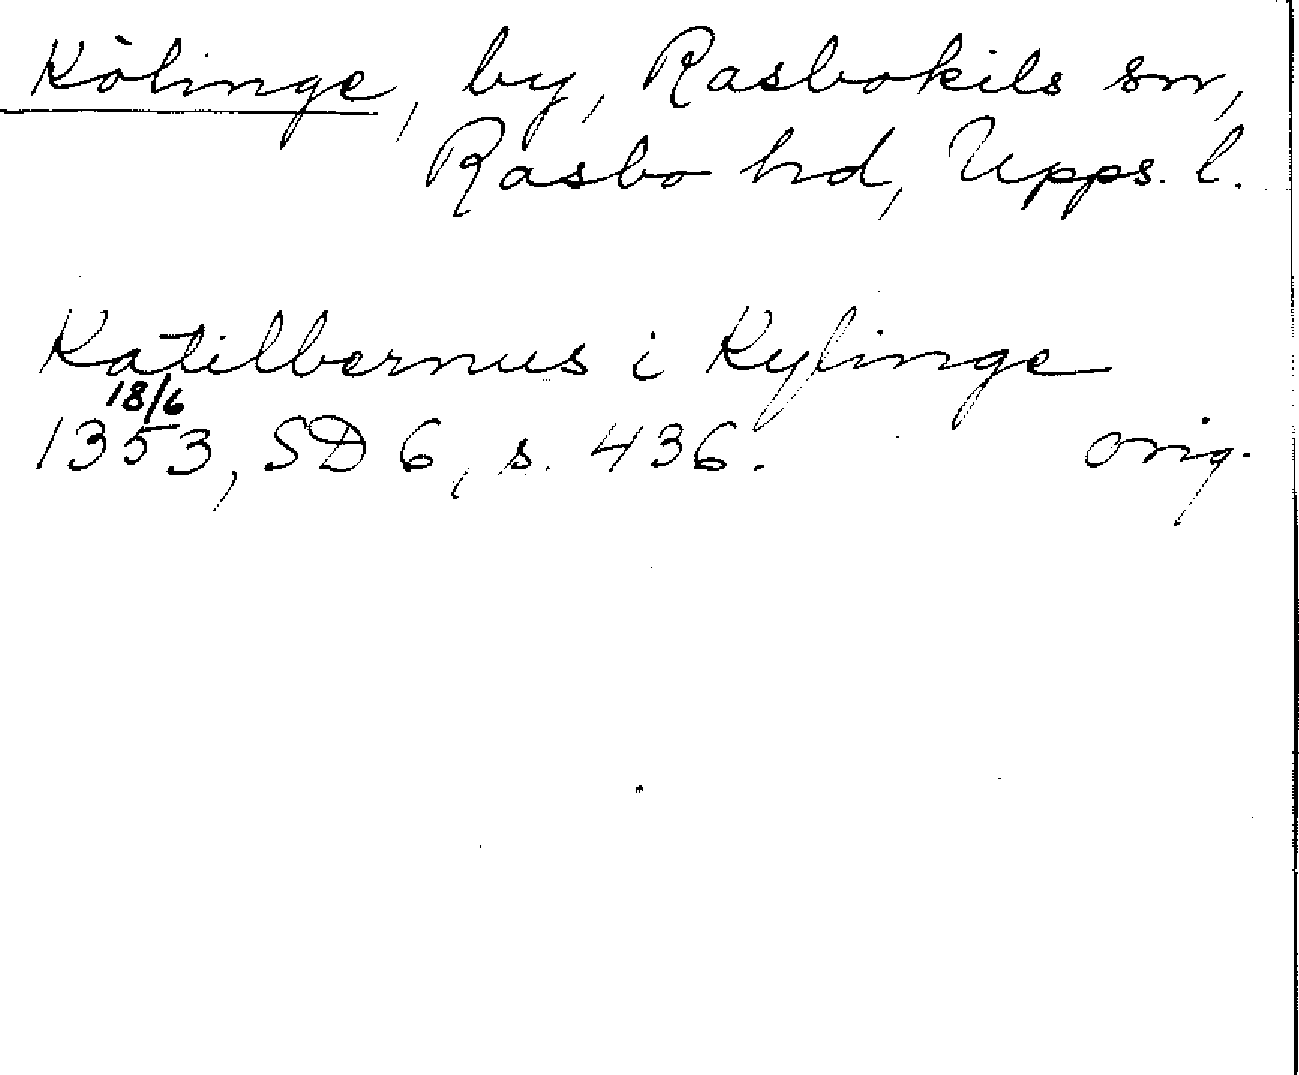 Kölinge, by, Rasbokils sn,
Rasbo hd, Upps. l.
Katilbernus i Kylinge
18/6
1353, SD 6, s. 436. orig.